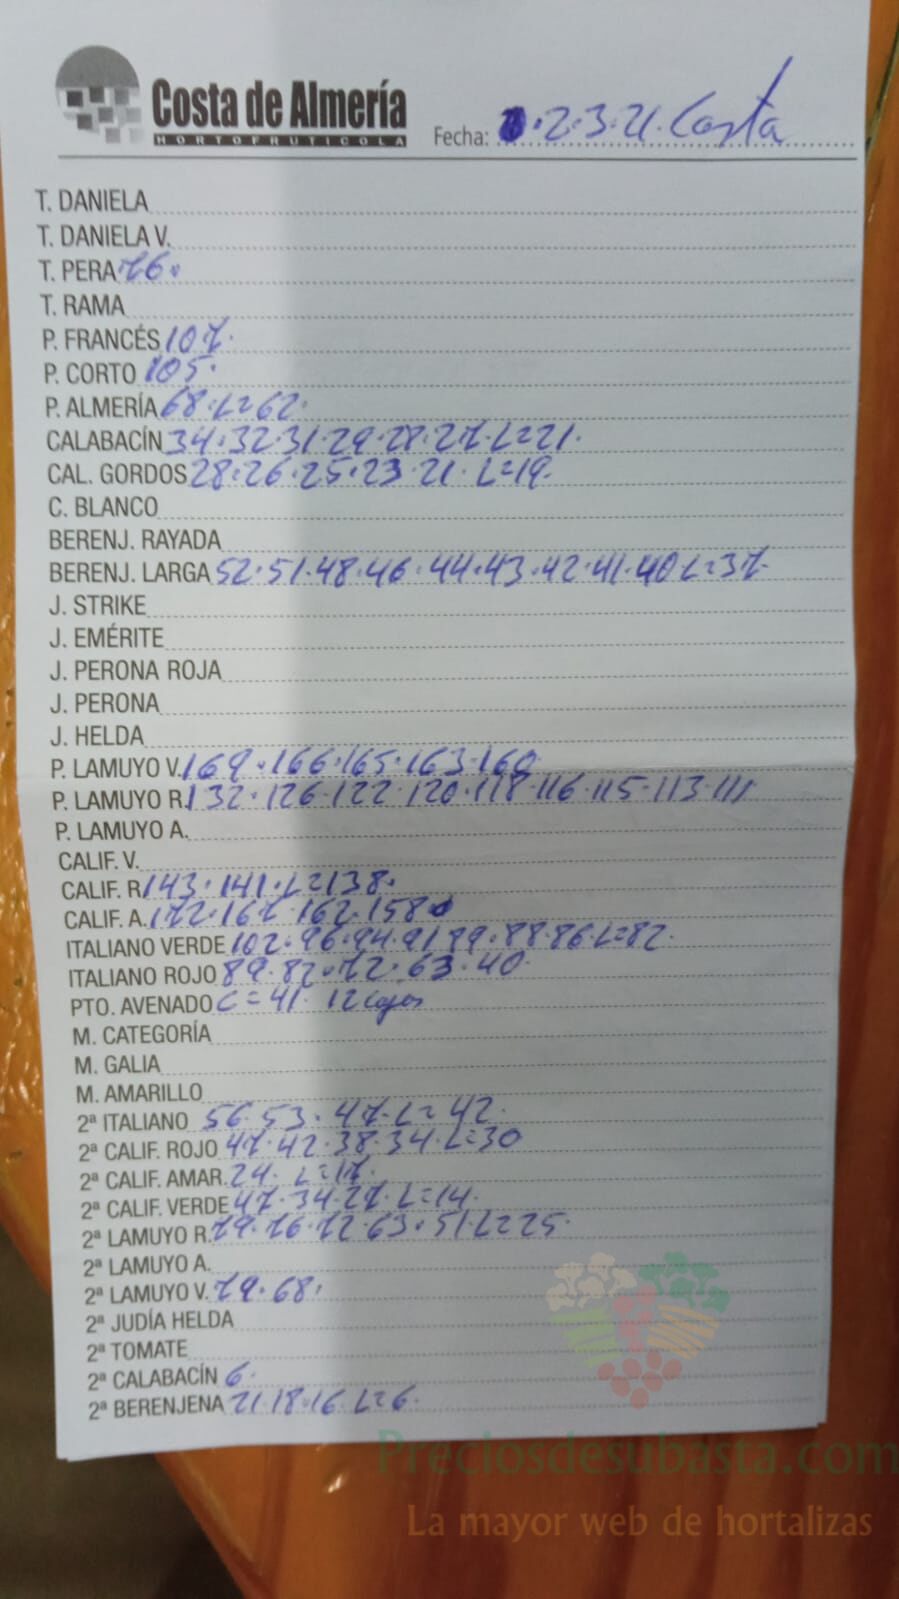 Costa de Almería
HORTOFRUTICOLA
Fecha: 2.3.21. Costa
T. DANIELA
T. DANIELA V.
T. PERA 76.
T. RAMA
P. FRANCÉS 107.
P. CORTO 105.
P. ALMERÍA 68. L=62.
CALABACÍN 34.32.31.29.28.27. L=21.
CAL. GORDOS 28.26.25.23.21. L=19.
C. BLANCO
BERENJ. RAYADA
BERENJ. LARGA 52.51.48.46.44.43.42.41.40 L=37.
J. STRIKE
J. EMÉRITE
J. PERONA ROJA
J. PERONA
J. HELDA
P. LAMUYO V. 169.166.165.163.160
P. LAMUYO R. 132.126.122.120.118.116.115.113.111
P. LAMUYO A.
CALIF. V.
CALIF. R. 143.141. L=138.
CALIF. A. 172.167.162.158
ITALIANO VERDE 102.96.94.91 89.88.86. L=82.
ITALIANO ROJO 89.82.72.63.40
PTO. AVENADO C=41. 12 cajas
M. CATEGORÍA
M. GALIA
M. AMARILLO
2ª ITALIANO 56.53.47. L=42.
2ª CALIF. ROJO 47.42.38.34. L=30
2ª CALIF. AMAR. 24. L=17.
2ª CALIF. VERDE 47.34.27. L=14.
2ª LAMUYO R. 79.76.72.63.51 L=25.
2ª LAMUYO A.
2ª LAMUYO V. 79.68.
2ª JUDÍA HELDA
2ª TOMATE
2ª CALABACÍN 6.
2ª BERENJENA 21.18.16. L=6.
Preciosdesubasta.com
La mayor web de hortalizas